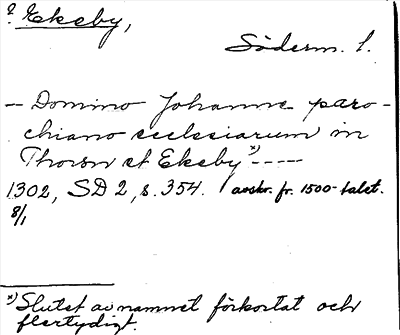 ? Ekeby,
Söderm. l.
— Domino Johanne paro-
chiano ecclesiarum in
Thorsn et Ekeby *) ----
1302, SD 2, s. 354. avskr. fr. 1500-talet.
8/1
*) Slutet av namnet förkortat och
flertydigt.